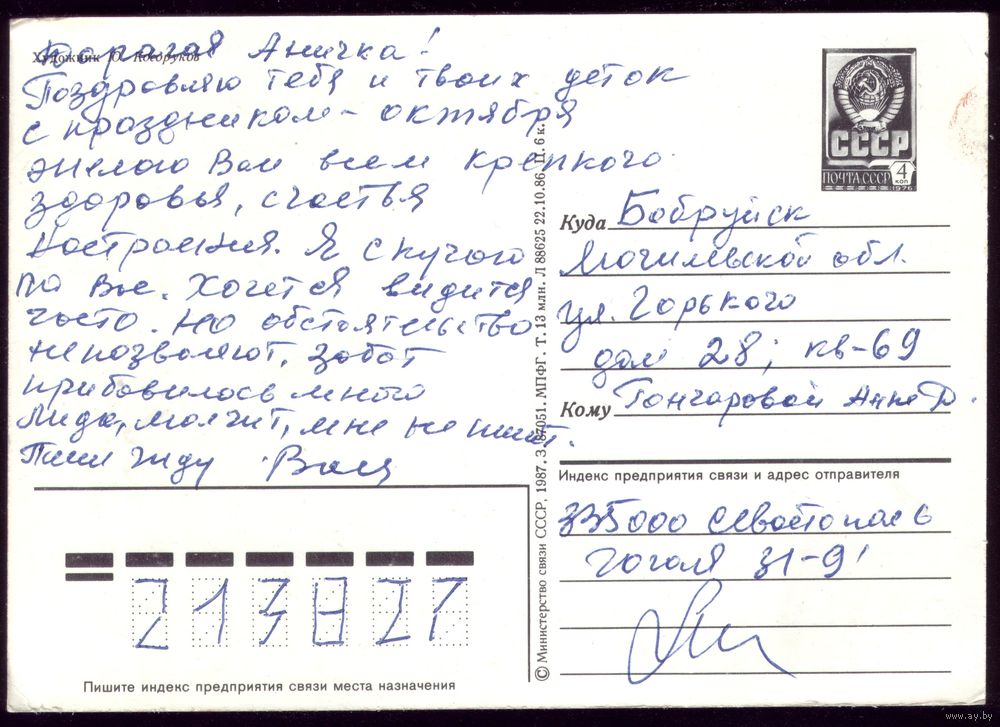 Художник Ю. Косоруков
Дорогая Аничка!
Поздровляю тебя и твоих деток
с праздником - октября
желаю Вам всем крепкого
здоровья, счастья
Настроения. Я скучаю
по Вас. Хочется видится
часто. Но обстоятельство
непозволяют. Забот
прибавилось много
Лида, молчит, мне не пишет.
Пиши жду
СССР
ПОЧТА СССР 4 коп
1976
Куда Бобруйск
Могилевской обл.
ул. Горького
дом 28; кв-69
Кому Гончаровой Анне Д.
Индекс предприятия связи и адрес отправителя
335000 Севастополь 6
Гоголя 31-91
213827
Пишите индекс предприятия связи места назначения
© Министерство связи СССР, 1987. З. 87051. МПФГ. Т. 13 млн. Л 88625 22.10.86. Ц. 6 к.
www.ay.by